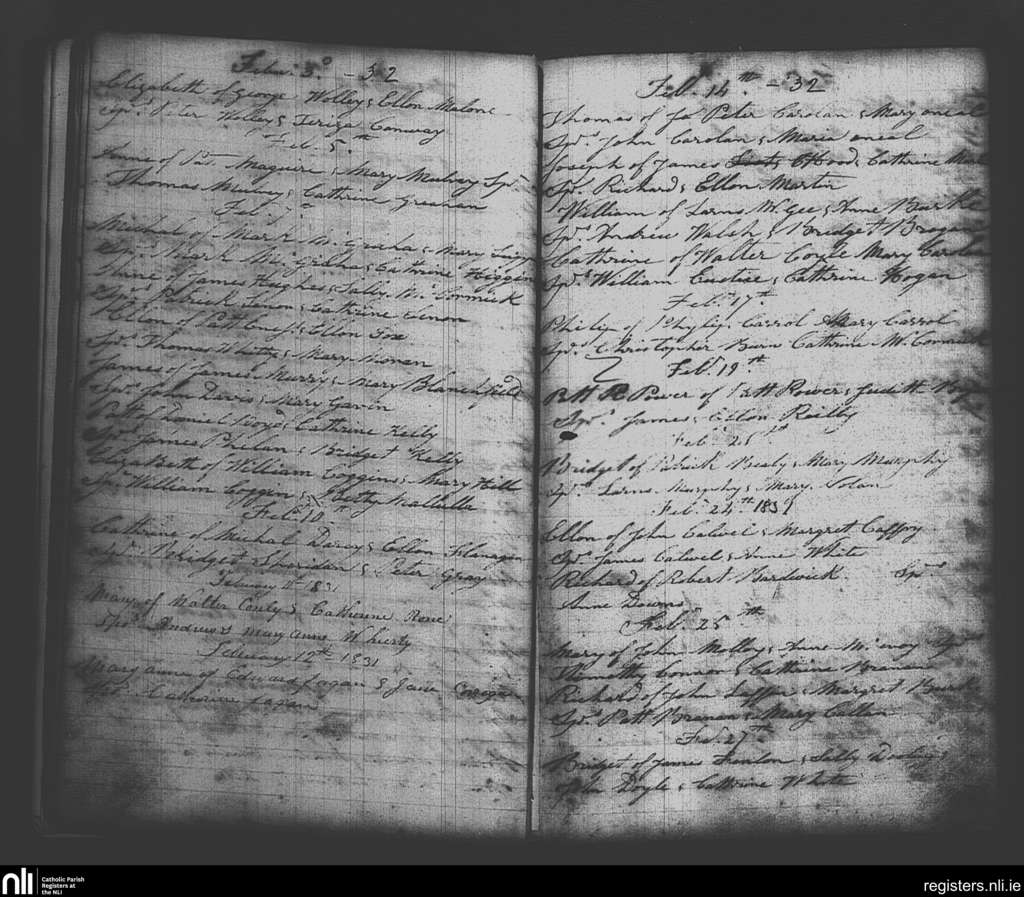 Feb. 3.º - 32
Elizabeth of George Holley & Ellon Malone
Spr. Peter Holley & Teriza Conway
Feb. 5th
Anne of Pat. Maguire & Mary Mulvey Spr.
Thomas & Cathrine Greenan
Feb. 7th
Michael of Mark & Mary
Spr. Mark & Cathrine Higgins
of James Hughes & Sally McCormick
Spr. Patrick Lenon & Cathrine Lenon
of Patt & Ellon Fox
Spr. Thomas White & Mary
James of James Murry & Mary Blanchfield
Spr. John Davis & Mary Gavin
Patt of Daniel & Cathrine Kelly
Spr. James Phelan & Bridget Kelly
Elizabeth of William Coggins & Mary Hill
Spr. William Coggin & Betty
Feb. 10th
Cathrine of Michal Darcy & Ellon Flanagan
Spr. Bridget Sheridan & Peter Gray
Febuary 11th 1831
Mary of Walter Conly & Catherine
Spr. Andrew & Mary Anne Wherty
Febuary 12th - 1831
Mary anne of Edward fagan & Jane Corrigan
Spr. Catherine fagan
Feb. 14th - 32
Thomas of Peter Carolan & Mary oneal
Spr. John Carolan & Maria oneal
Joseph of James Hood & Cathrine
Spr. Richard & Ellon Martin
William of McGee & Anne Burke
Spr. Andrew Walsh & Bridget Brogan
Cathrine of Walter Coyle Mary
Spr. William Eustise & Cathrine Hogan
Feb. 17th
Philip of Phylip Carrol & Mary Carrol
Spr. Christopher Burn Cathrine McCormick
Feb. 19th
Patt Power of Patt Power & Judith
Spr. James & Ellon Reilly
Feb. 21st
Bridget of Patrick Healy & Mary Murphy
Spr. Murphy & Mary Nolan
Feb. 24th 1832
Ellon of John Calwel & Margret Caffry
Spr. James Calwel & Anne White
Richard of Robert Bardwick. Spr.
Anne Downs
Feb. 25th
Mary of John Molloy & Anne Spr.
Thimothy Connor & Cathrine Brenan
Richard of John Laffin & Margret Burke
Spr. Patt Brenan & Mary Cullen
Feb. 27th
Bridget of James & Sally
John Doyle & Cathrine White
nli
Catholic Parish
Registers at
the NLI
registers.nli.ie